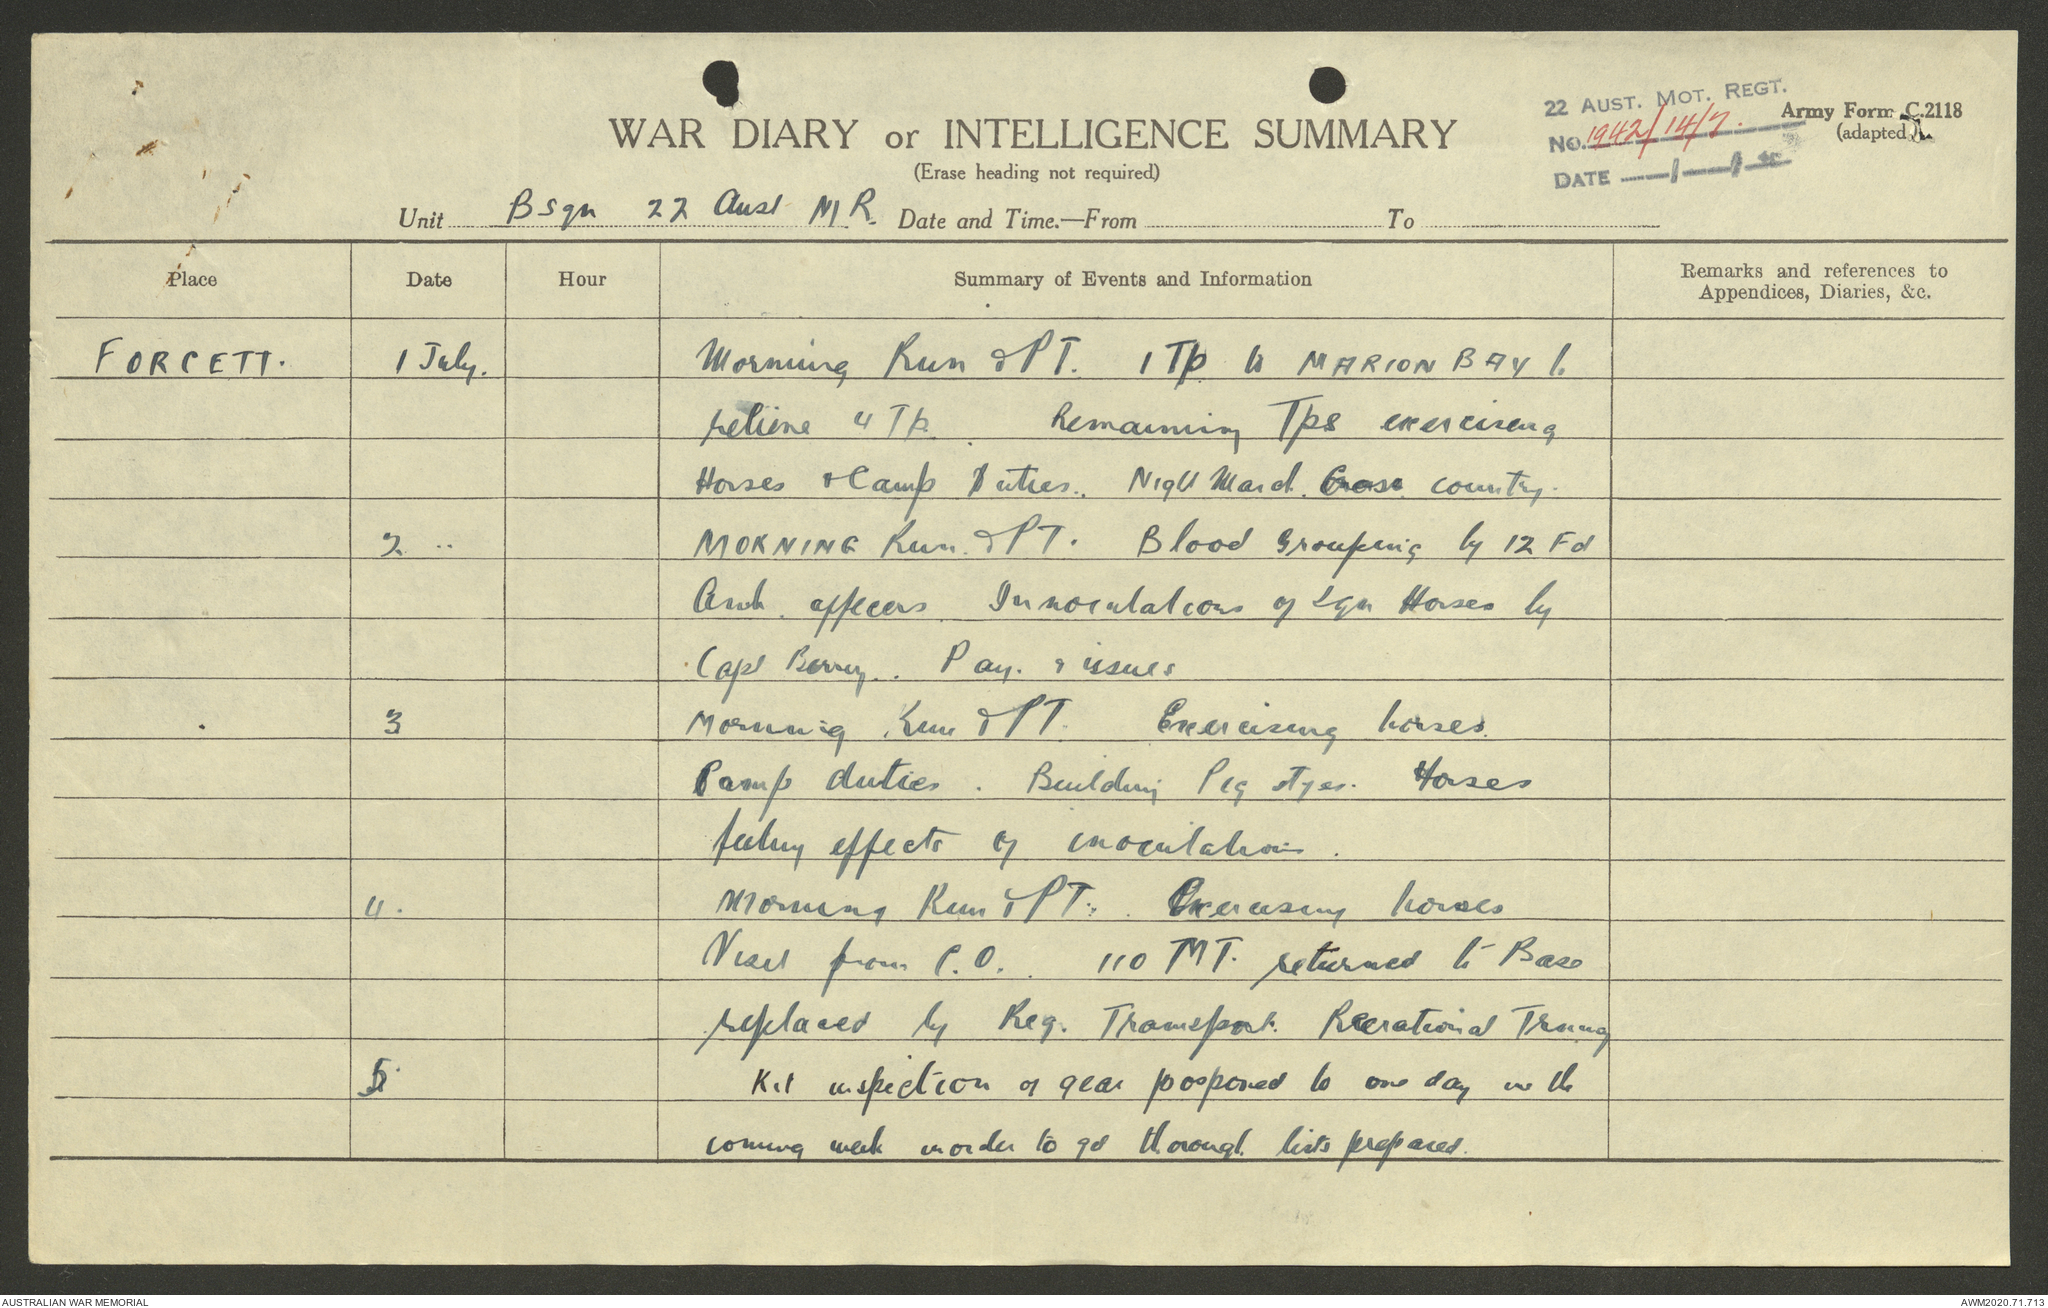 22 AUST. MOT. REGT.
No. 1942/14/7.
DATE
Army Form C.2118
(adapted)
WAR DIARY or INTELLIGENCE SUMMARY
(Erase heading not required)
Unit B Sqn 22 Aust M R. Date and Time.—From To
Place Date Hour Summary of Events and Information Remarks and references to
Appendices, Diaries, &c.
FORCETT. 1 July. Morning Run & PT. 1 Tp to MARION BAY to
relieve 4 Tp. Remaining Tps exercising
Horses & Camp Duties. Night March Cross country.
2 " MORNING Run & PT. Blood Grouping by 12 Fd
Amb. officers. Innoculations of Sqn Horses by
Capt Berry. Pay. & issues
3 Morning Run & PT. Exercising horses.
Camp duties. Building Pig styes. Horses
feeling effects of inoculations.
4. Morning Run & PT. Exercising horses
Visit from C.O. 110 MT. returned to Base
replaced by Reg. Transport. Recrational Traing
5. Kit inspection of gear posponed to one day in the
coming week inorder to go thorough lists prepared.
AUSTRALIAN WAR MEMORIAL AWM2020.71.713